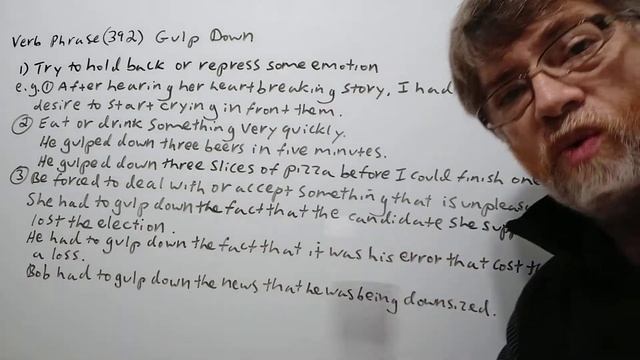 Verb Phrase (392) Gulp Down
1) Try to hold back or repress some emotion
e.g. ① After hearing her heartbreaking story, I had
desire to start crying in front them.
② Eat or drink something very quickly.
He gulped down three beers in five minutes.
He gulped down three slices of pizza before I could finish one
③ Be forced to deal with or accept something that is
She had to gulp down the fact that the candidate she
lost the election.
He had to gulp down the fact that it was his error that cost
a loss.
Bob had to gulp down the news that he was being downsized.